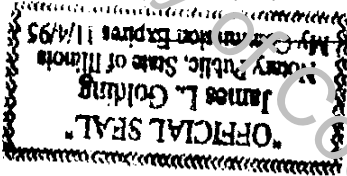 "OFFICIAL SEAL"
James L. Golding
Notary Public, State of Illinois
My Commission Expires 11/4/95